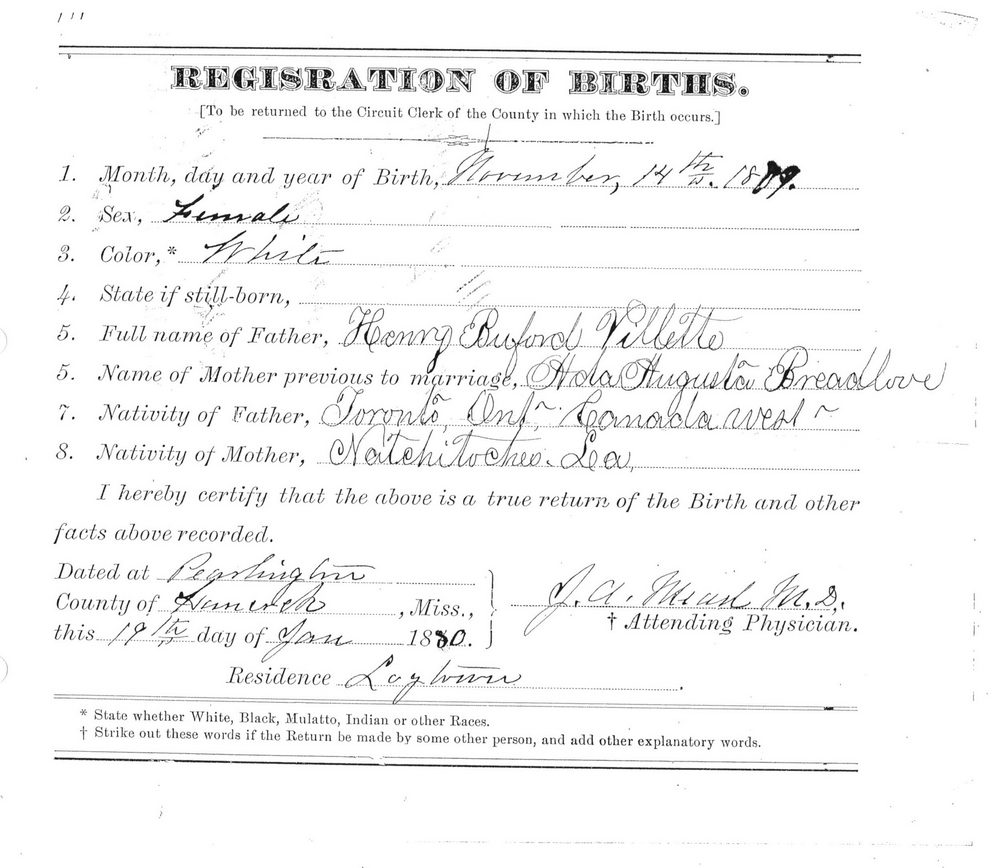 REGISRATION OF BIRTHS.
[To be returned to the Circuit Clerk of the County in which the Birth occurs.]
1. Month, day and year of Birth, November, 14th 1879.
2. Sex, Female
3. Color,* White
4. State if still-born,
5. Full name of Father, Henry Buford Villette
5. Name of Mother previous to marriage, Ada Augusta Breadlove
7. Nativity of Father, Toronto, Ont, Canada West
8. Nativity of Mother, Natchitoches. La.
I hereby certify that the above is a true return of the Birth and other
facts above recorded.
Dated at Pearlington
County of Hancock, Miss.,
this 19th day of Jan 1880.
J. A. Mead M.D.
† Attending Physician.
Residence Logtown.
* State whether White, Black, Mulatto, Indian or other Races.
† Strike out these words if the Return be made by some other person, and add other explanatory words.